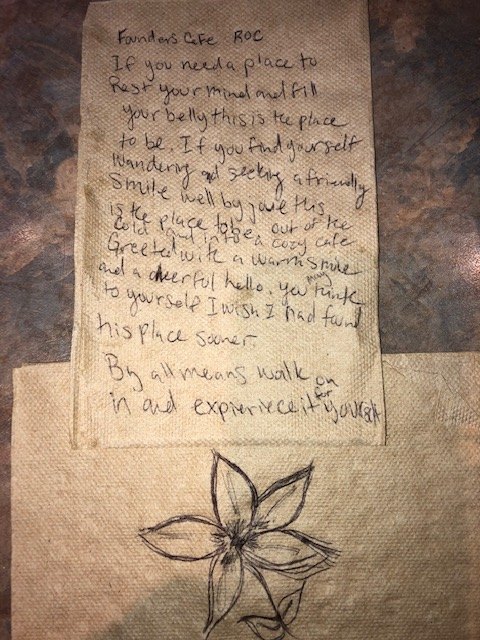 Founders Cafe ROC
If you need a place to
Rest your mind and fill
your belly this is the place
to be. If you find yourself
Wandering and seeking a friendly
Smile well by jove this
is the place to be out of the
cold and into a cozy cafe
Greeted with a warm smile
and a cheerful hello. you may think
to yourself I wish I had found
this place sooner.
By all means walk on
in and expreriece it for yourself